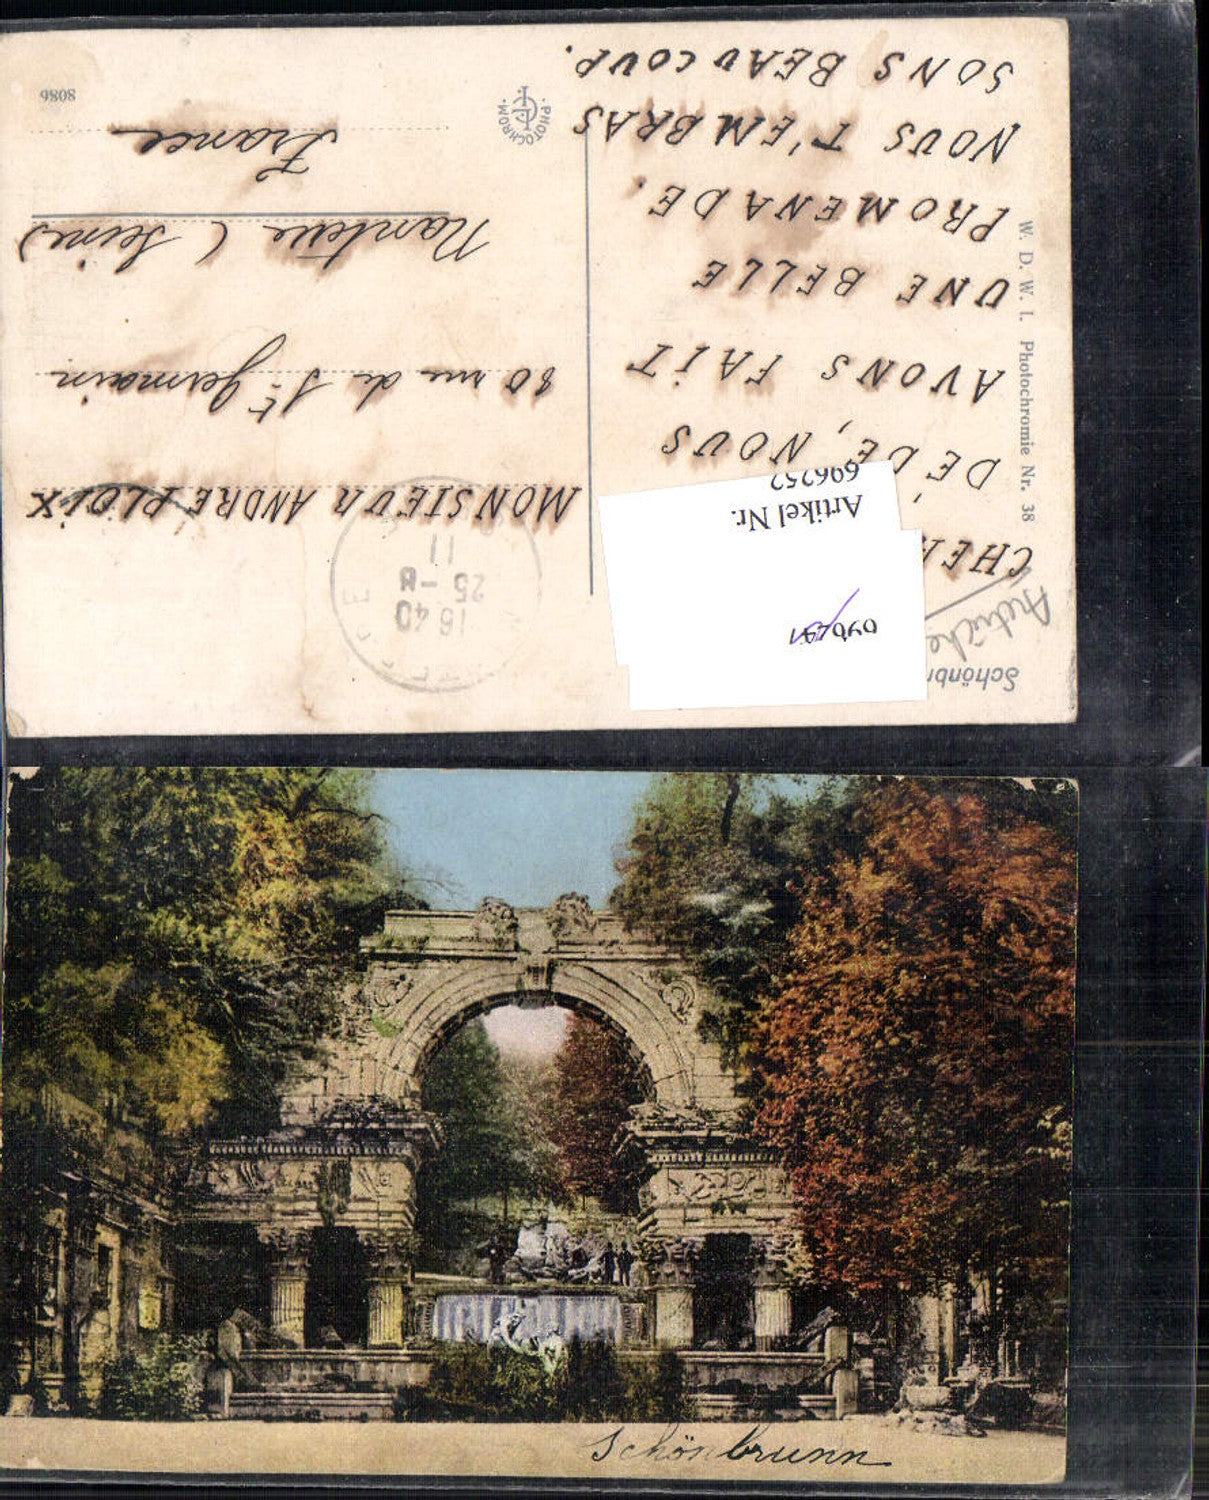 Schönbr
Autriche
CHER
DÉDÉ, NOUS
AVONS FAIT
UNE BELLE
PROMENADE.
NOUS T'EMBRAS
SONS BEAUCOUP.
W. D. W. I. Photochromie Nr. 38
PHOTOCHROM.
Artikel Nr.
696252
16 40
25 - 8
11
MONSIEUR ANDRE PLOIX
80 rue de St Germain
Nanterre (Seine)
France
8086
Schönbrunn